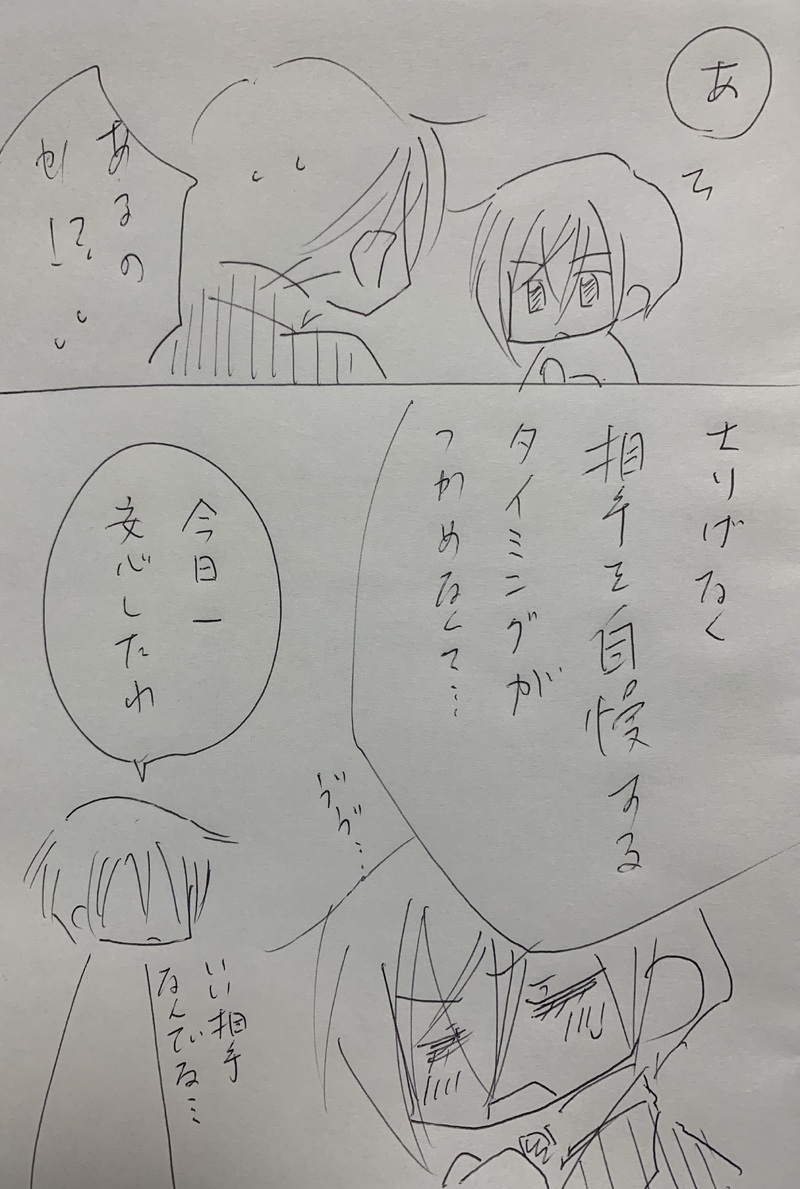 あ
あるの
か!?
さりげなく
相手を自慢する
タイミングが
つかめなくて…
うぅ…
今日一
安心したわ
いい相手
なんでいるな…